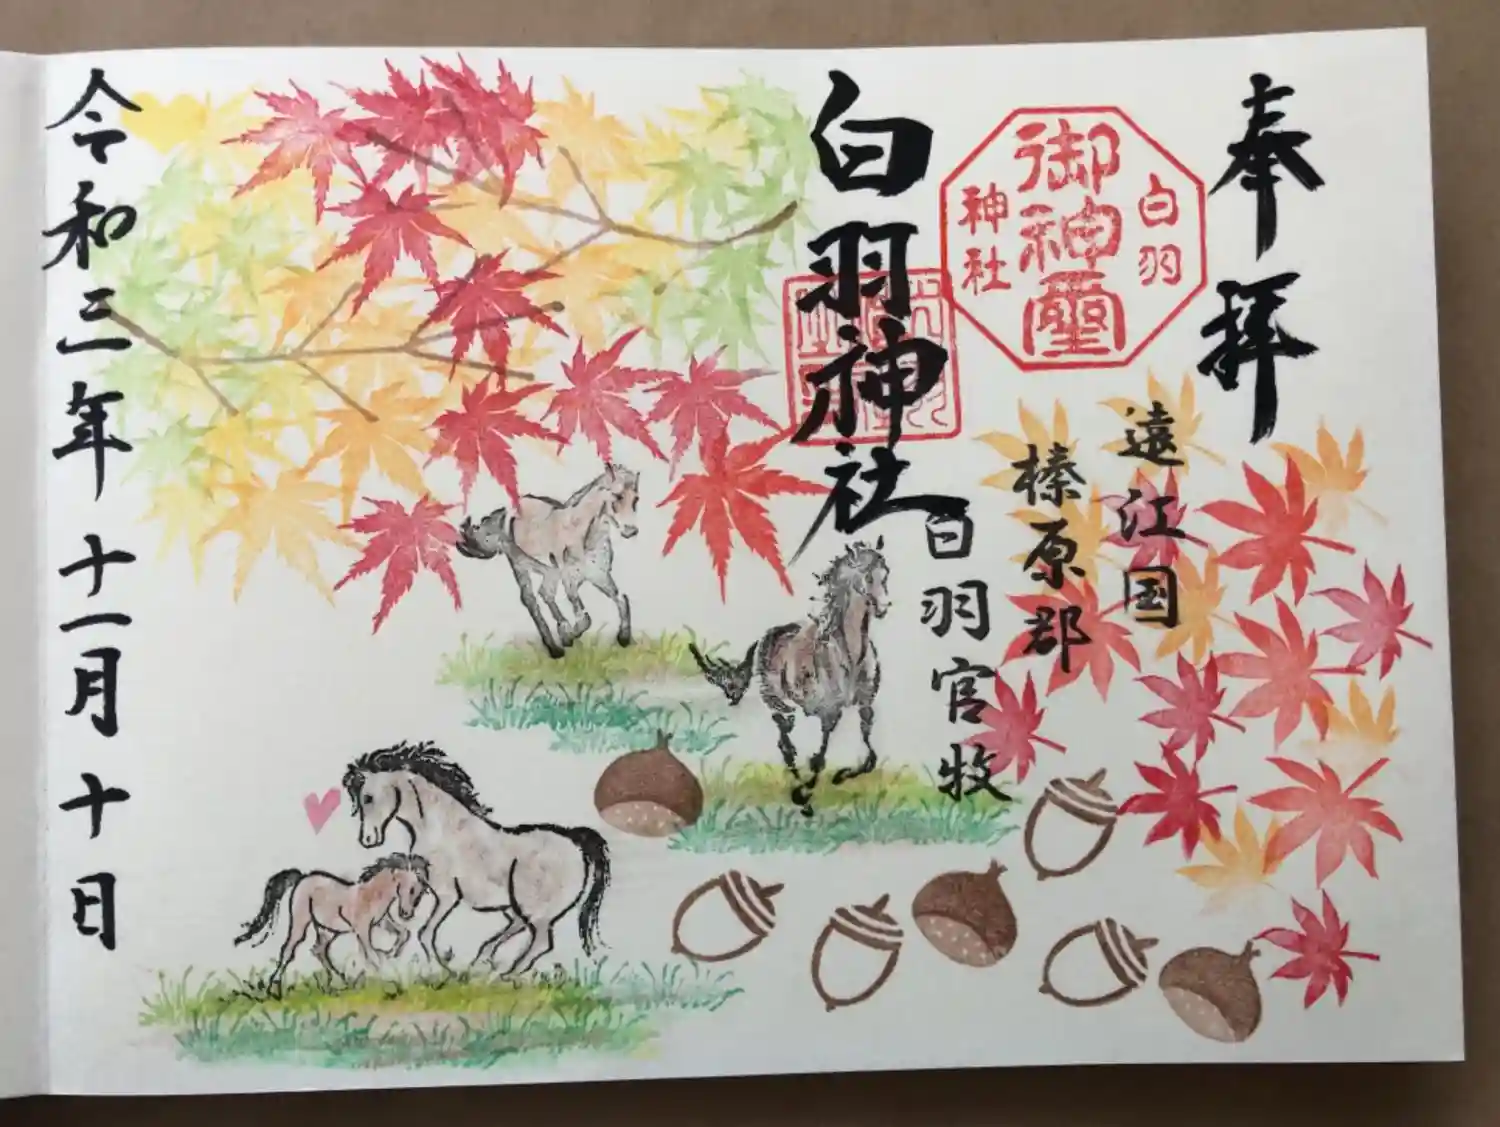 奉拝
遠江国
榛原郡
白羽官牧
白羽
御神璽
神社
白羽神社
令和三年十一月十日